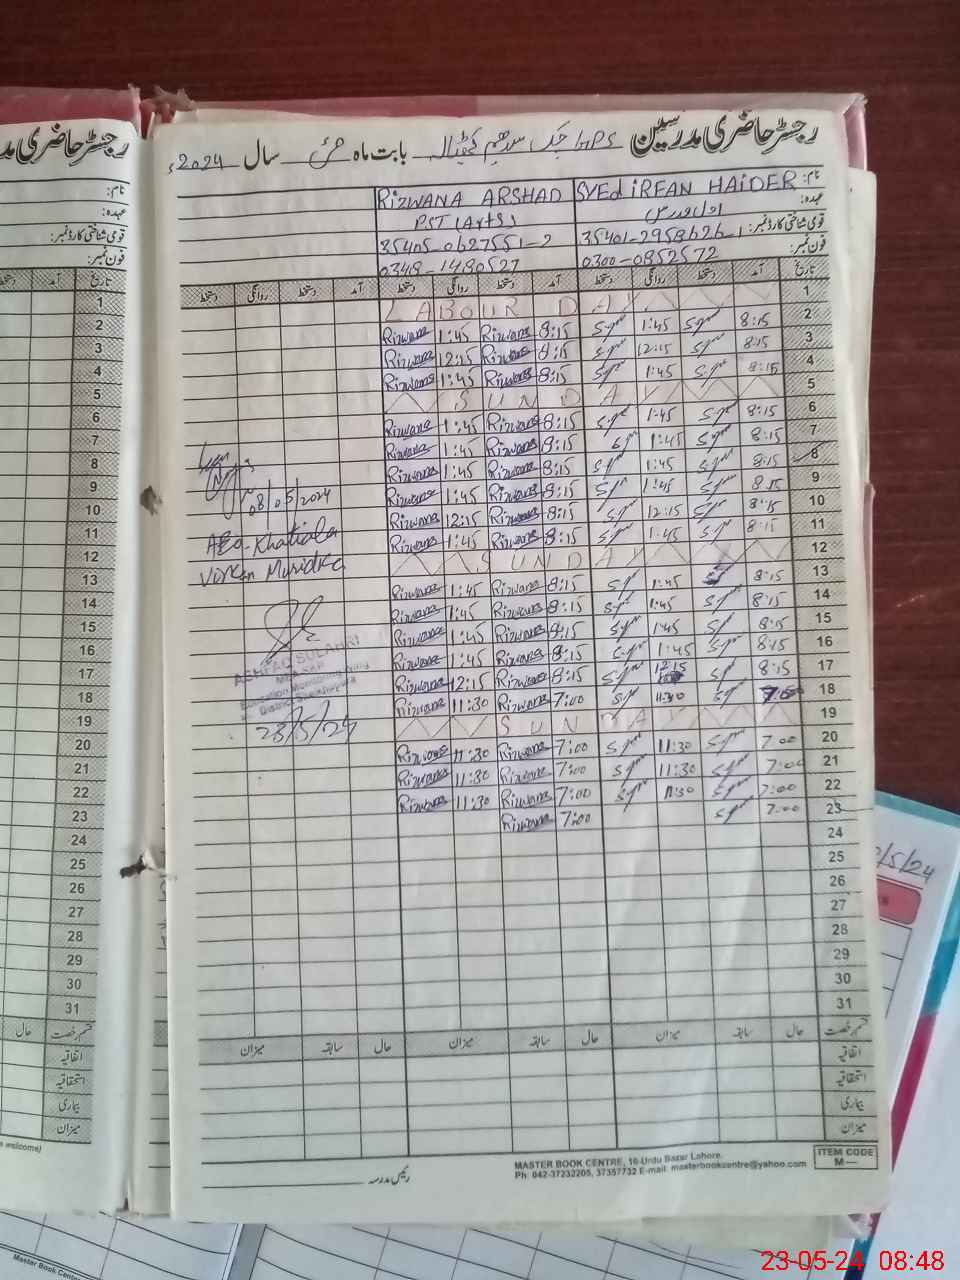 رجسٹر حاضری مدرسین GPS چک بابت ماہ مئی سال 2024ء
نام: SYEd iRFAN HAiDER RiZWANA ARSHAD
عہدہ: PST (Arts)
قومی شناختی کارڈ نمبر: 35401-2958626-1 35405-0627551-2
فون نمبر: 0300-0852572 0348-1480527
تاریخ آمد دستخط روانگی دستخط آمد دستخط روانگی دستخط آمد دستخط روانگی دستخط
1 LABOUR DAY
2 8:15 1:45 8:15 Rizwana 1:45 Rizwana
3 8:15 12:15 8:15 Rizwana 12:15 Rizwana
4 8:15 1:45 8:15 Rizwana 1:45 Rizwana
5 SUNDAY
6 8:15 1:45 8:15 Rizwana 1:45 Rizwana
7 8:15 1:45 8:15 Rizwana 1:45 Rizwana
8 8:15 1:45 8:15 Rizwana 1:45 Rizwana
9 8:15 1:45 8:15 Rizwana 1:45 Rizwana
10 8:15 12:15 8:15 Rizwana 12:15 Rizwana
11 8:15 1:45 8:15 Rizwana 1:45 Rizwana
12 SUNDAY
13 8:15 1:45 8:15 Rizwana 1:45 Rizwana
14 8:15 1:45 8:15 Rizwana 1:45 Rizwana
15 8:15 1:45 8:15 Rizwana 1:45 Rizwana
16 8:15 1:45 8:15 Rizwana 1:45 Rizwana
17 8:15 12:15 8:15 Rizwana 12:15 Rizwana
18 7:00 11:30 7:00 Rizwana 11:30 Rizwana
19 SUNDAY
20 7:00 11:30 7:00 Rizwana 11:30 Rizwana
21 7:00 11:30 7:00 Rizwana 11:30 Rizwana
22 7:00 11:30 7:00 Rizwana 11:30 Rizwana
23 7:00 7:00 Rizwana
24
25
26
27
28
29
30
31
08/05/2024
AEO-Khatiala
Virkan Muridke
ASHFAQ SULAHRI
MEA SKP
Education Monitoring
District Sheikhupura
23/5/24
قسم رخصت حال سابقہ میزان حال سابقہ میزان حال سابقہ میزان
اتفاقیہ
استحقاقیہ
بیماری
میزان
رئیس مدرسہ
MASTER BOOK CENTRE, 16-Urdu Bazar Lahore.
Ph: 042-37232205, 37357732 E-mail: masterbookcentre@yahoo.com
ITEM CODE
M—
رجسٹر حاضری
نام:
عہدہ:
قومی شناختی کارڈ نمبر:
فون نمبر:
تاریخ آمد دستخط
1
2
3
4
5
6
7
8
9
10
11
12
13
14
15
16
17
18
19
20
21
22
23
24
25
26
27
28
29
30
31
قسم رخصت حال
اتفاقیہ
استحقاقیہ
بیماری
میزان
welcome)
/5/24
Master Book Centre
23-05-24 08:48